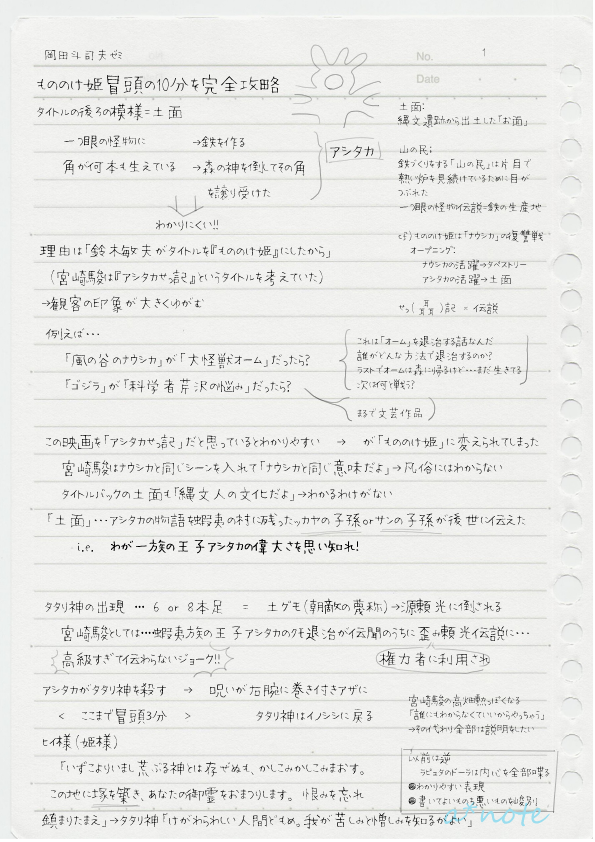 岡田斗司夫ゼミ
No. 1
Date
もののけ姫冒頭の10分を完全攻略
タイトルの後ろの模様=土面
一つ眼の怪物に →鉄を作る
角が何本も生えている →森の神を倒してその角
を譲り受けた
アシタカ
わかりにくい!!
土面:
縄文遺跡から出土した「お面」
山の民:
鉄づくりをする「山の民」は片目で
熱い炉を見続けているために目が
つぶれた
一つ眼の怪物伝説=鉄の生産地
cf) もののけ姫は「ナウシカ」の復讐戦
オープニング:
ナウシカの活躍→タペストリー
アシタカの活躍→土面
せっ(耳耳)記 = 伝説
理由は「鈴木敏夫がタイトルを『もののけ姫』にしたから」
(宮崎駿は『アシタカせっ記』というタイトルを考えていた)
→観客の印象が大きくゆがむ
例えば…
「風の谷のナウシカ」が「大怪獣オーム」だったら?
「ゴジラ」が「科学者芹沢の悩み」だったら?
これは「オーム」を退治する話なんだ
誰がどんな方法で退治するのか?
ラストでオームは森に帰るけど…まだ生きてる
次は何と戦う?
まるで文芸作品
この映画を「アシタカせっ記」だと思っているとわかりやすい → が「もののけ姫」に変えられてしまった
宮崎駿はナウシカと同じシーンを入れて「ナウシカと同じ意味だよ」→凡俗にはわからない
タイトルバックの土面も「縄文人の文化だよ」→わかるわけがない
「土面」…アシタカの物語を蝦夷の村に残ったカヤの子孫orサンの子孫が後世に伝えた
i.e. わが一族の王子アシタカの偉大さを思い知れ!
タタリ神の出現 … 6 or 8本足 = 土グモ(朝敵の蔑称)→源頼光に倒される
宮崎駿としては…蝦夷族の王子アシタカのクモ退治が伝聞のうちに歪み頼光伝説に…
高級すぎて伝わらないジョーク!!
権力者に利用され
アシタカがタタリ神を殺す → 呪いが右腕に巻き付きアザに
< ここまで冒頭3分 > タタリ神はイノシシに戻る
宮崎駿の高畑勲っぽくなる
「誰にもわからなくていいからやっちゃう」
→その代わり全部は説明をしたい
ヒイ様(姫様)
「いずこよりいまし荒ぶる神とは存ぜぬも、かしこみかしこみまおす。
この地に塚を築き、あなたの御霊をおまつりします。恨みを忘れ
鎮まりたまえ」→タタリ神「けがらわしい人間どもめ。我が苦しみと憎しみを知るがよい」
以前は逆
ラピュタのドーラは内心を全部喋る
●わかりやすい表現
●書いてよいものも悪いものも峻別
a*note